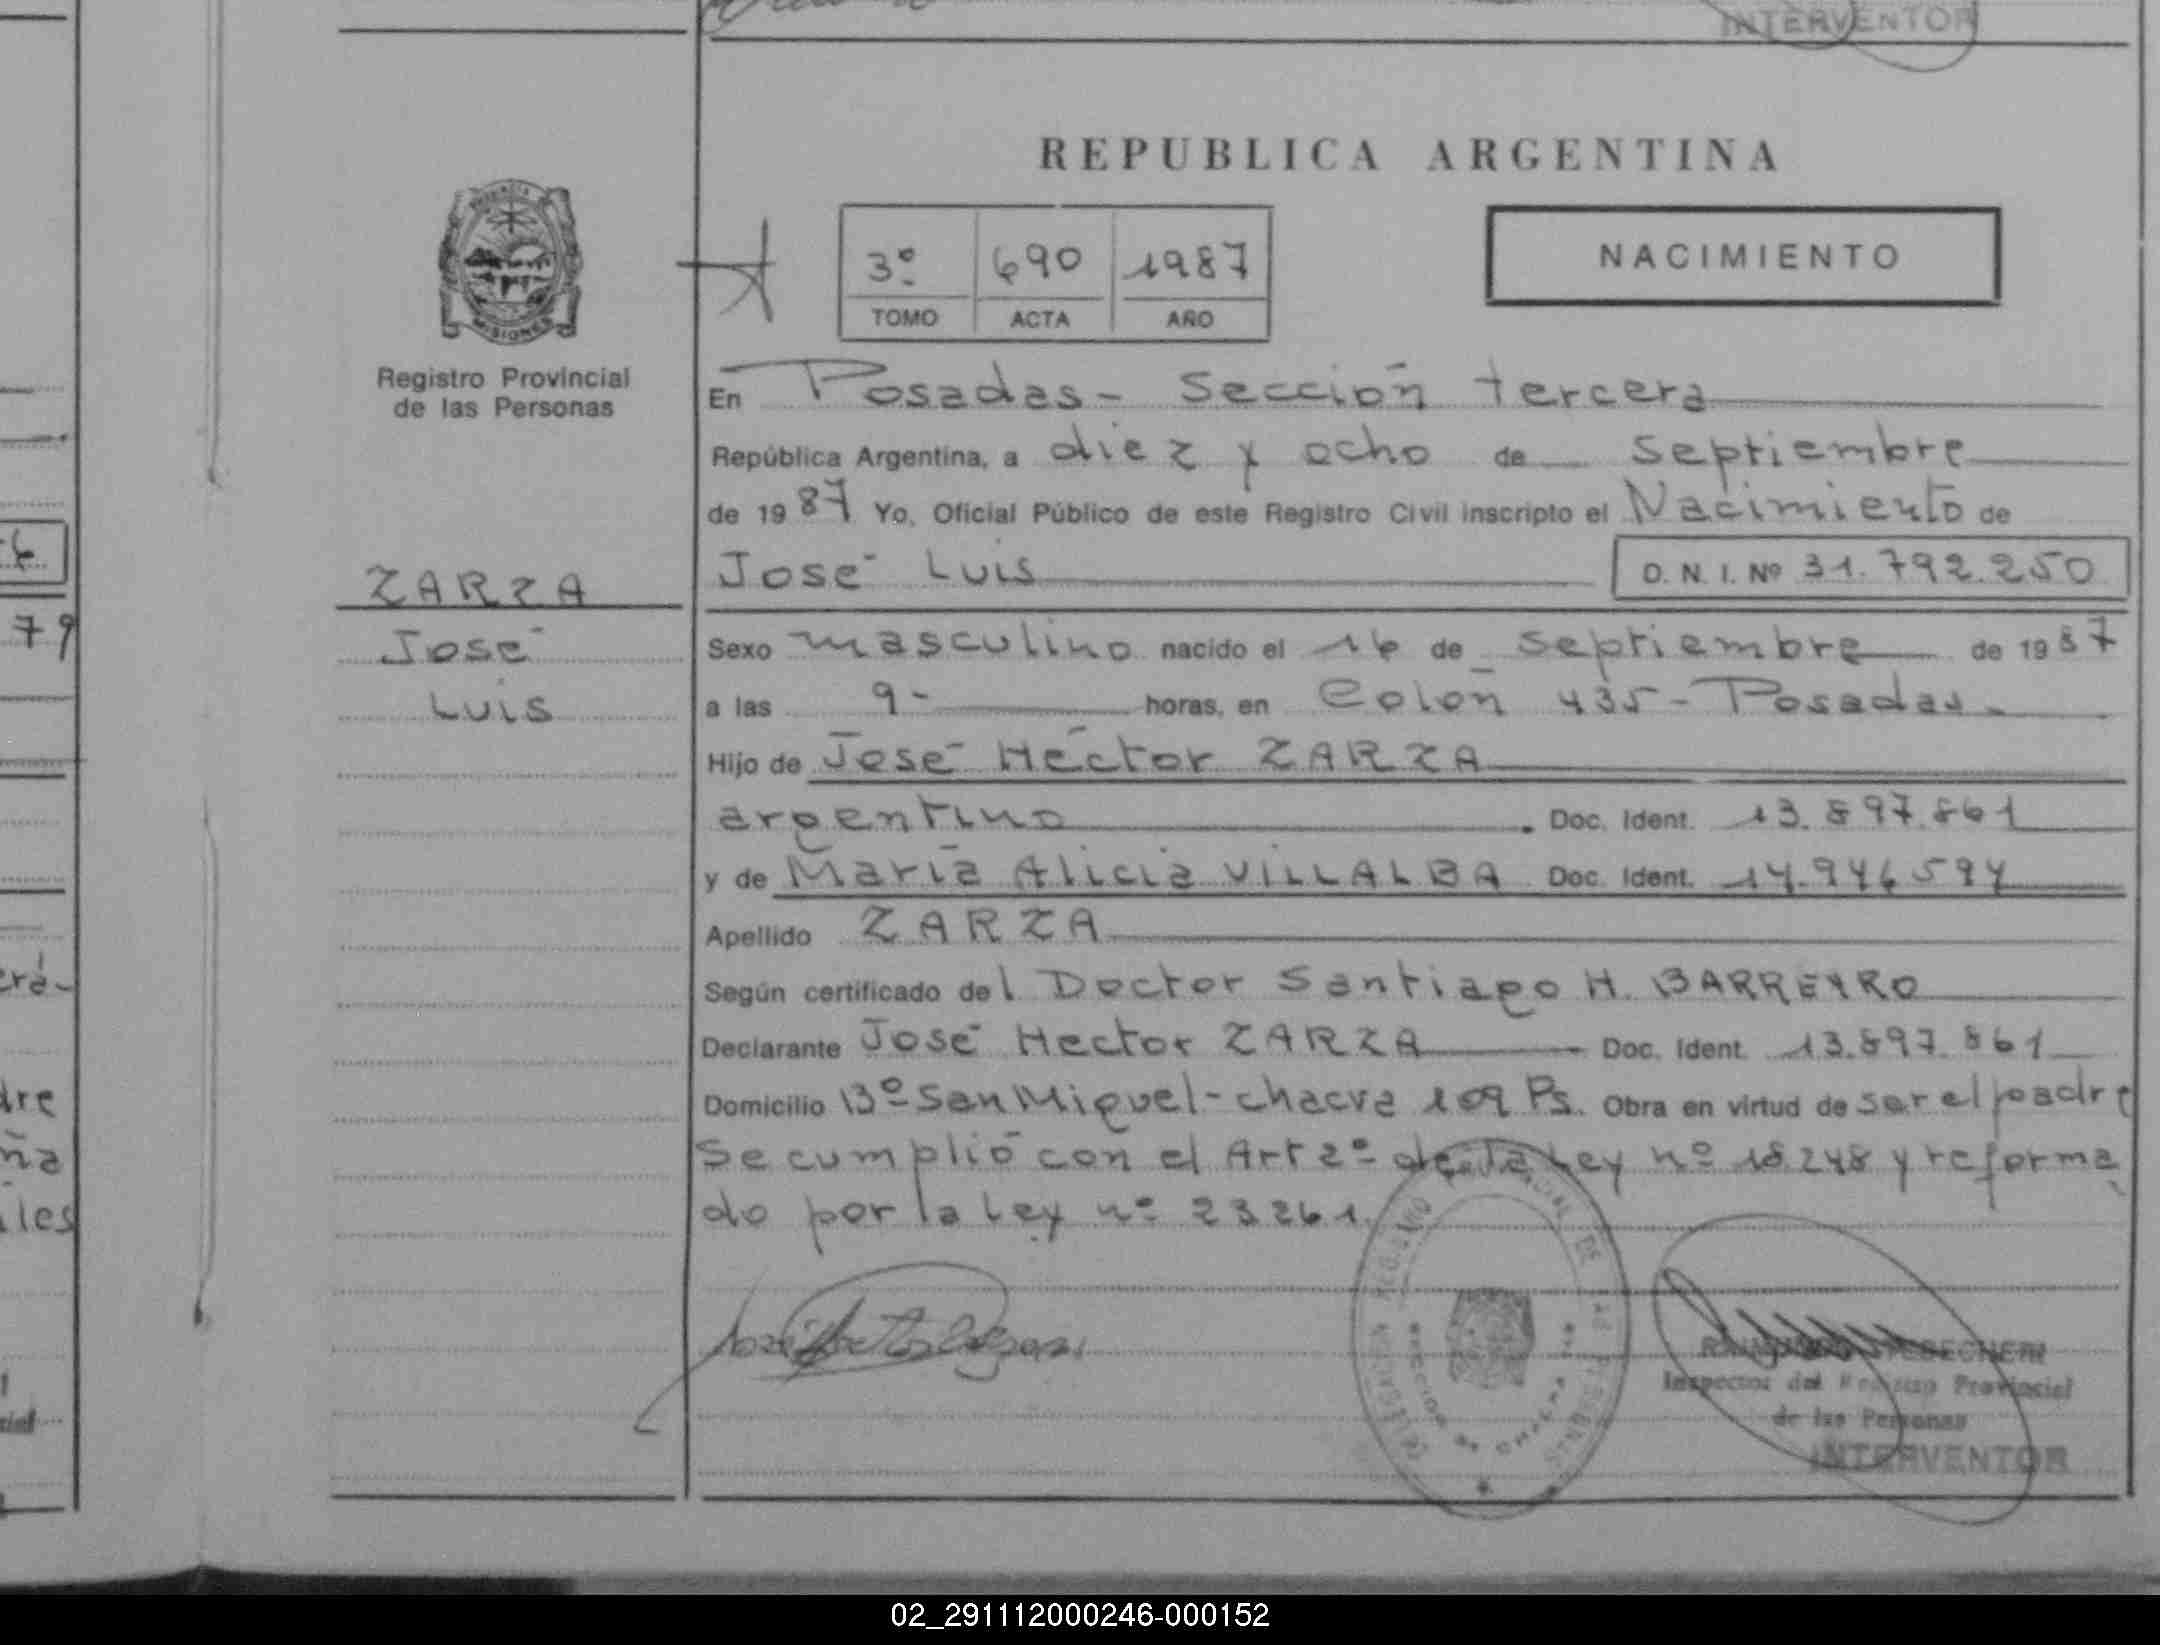 INTERVENTOR
REPUBLICA ARGENTINA
MISIONES
Registro Provincial
de las Personas
3º 690 1987
TOMO ACTA AÑO
NACIMIENTO
En Posadas - Sección tercera
República Argentina, a diez y ocho de septiembre
de 1987 Yo, Oficial Público de este Registro Civil inscripto el Nacimiento de
José Luis D. N. I. Nº 31.792.250
ZARZA
José
Luis
Sexo masculino nacido el 16 de septiembre de 1987
a las 9- horas, en Colón 435 - Posadas.
Hijo de José Héctor ZARZA
argentino. Doc. Ident. 13.897.861
y de María Alicia VILLALBA Doc. Ident. 14.946.594
Apellido ZARZA
Según certificado del Doctor Santiago H. BARREYRO
Declarante José Hector ZARZA Doc. Ident. 13.897.861
Domicilio Bº San Miguel - chacra 109 Ps. Obra en virtud de ser el padre
Se cumplió con el Art 2º de la Ley nº 18.248 y reforma
do por la Ley nº 23261.
Inspector del Registro Provincial
de las Personas
INTERVENTOR
79
erá-
dre
ña
iles
02_291112000246-000152